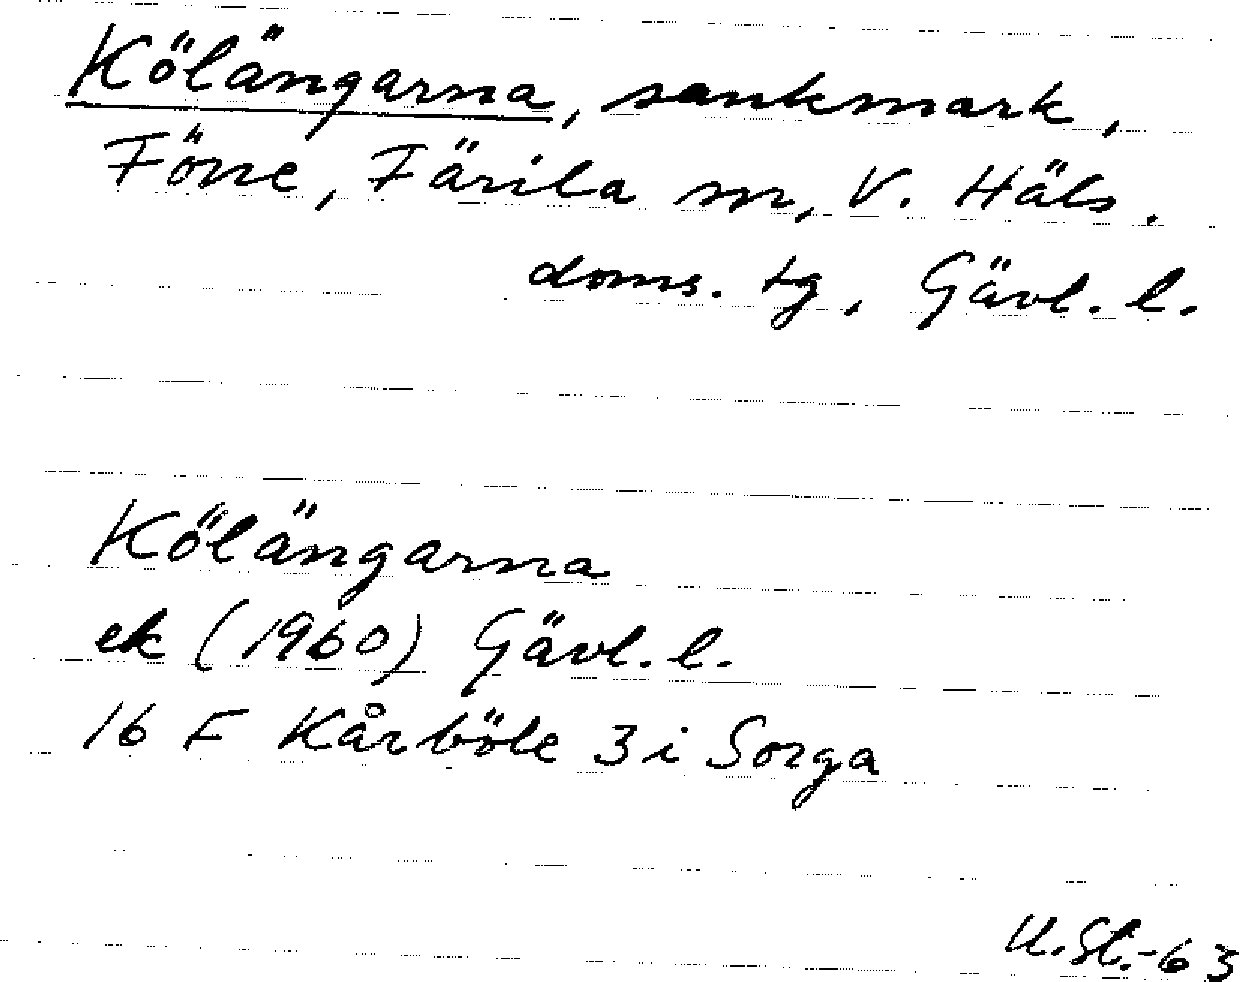 Kölängarna, sankmark,
Föne, Färila sn, V. Häls.
doms. tg, Gävl. l.
Kölängarna
ek (1960) Gävl. l.
16 F Kårböle 3 i Sorga
U. St. -63